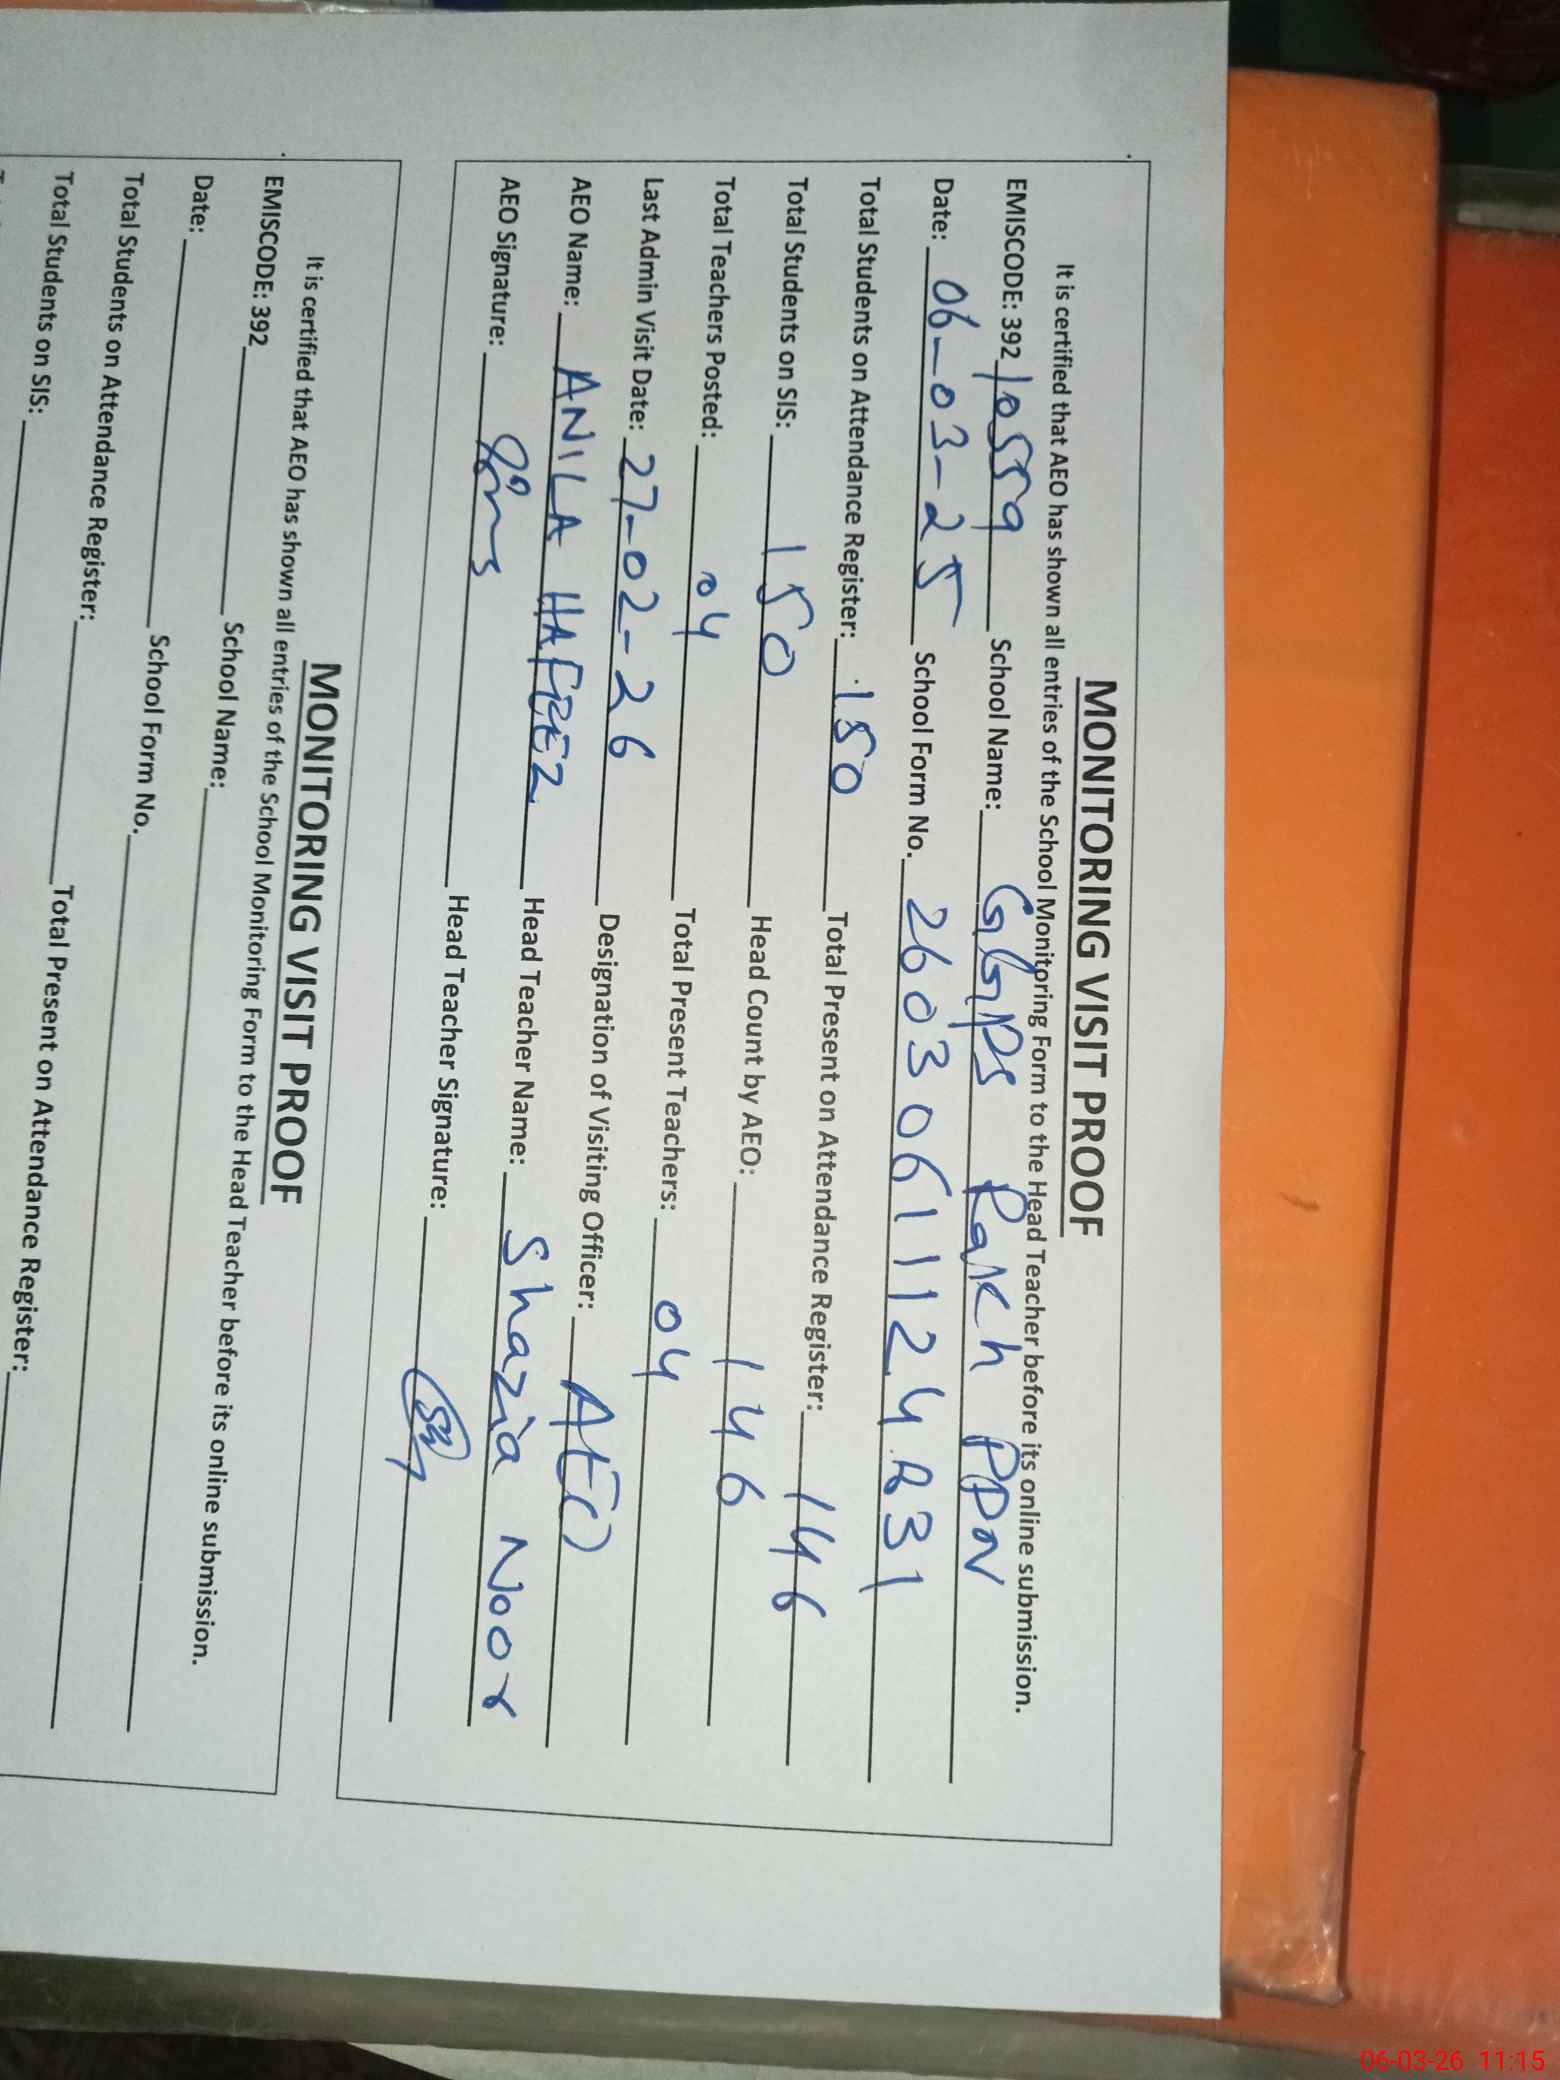 MONITORING VISIT PROOF
It is certified that AEO has shown all entries of the School Monitoring Form to the Head Teacher before its online submission.
EMISCODE: 392 10559 School Name: GGPS Rakh PPN
Date: 06-03-25 School Form No. 2603061124831
Total Students on Attendance Register: 150 Total Present on Attendance Register: 146
Total Students on SIS: 150 Head Count by AEO: 146
Total Teachers Posted: 04 Total Present Teachers: 04
Last Admin Visit Date: 27-02-26 Designation of Visiting Officer: AEO
AEO Name: ANILA HAFEEZ Head Teacher Name: Shazia Noor
AEO Signature: Head Teacher Signature:
MONITORING VISIT PROOF
It is certified that AEO has shown all entries of the School Monitoring Form to the Head Teacher before its online submission.
EMISCODE: 392 School Name:
Date: School Form No.
Total Students on Attendance Register: Total Present on Attendance Register:
Total Students on SIS:
06-03-26 11:15